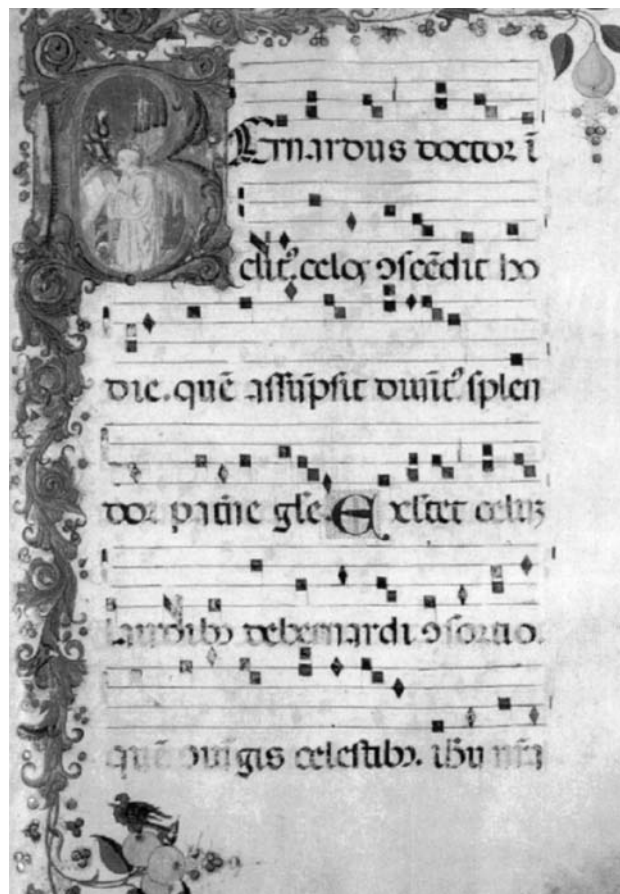 Bernardus doctor ī
clitꝰ celoꝝ ꝯscēdit ho
die. quē assūpsit diuītꝰ splen
dor patīe glē. Exsltet celuz
laudibꝫ de bernardi ꝯsortio.
quē celestibꝫ. ihū